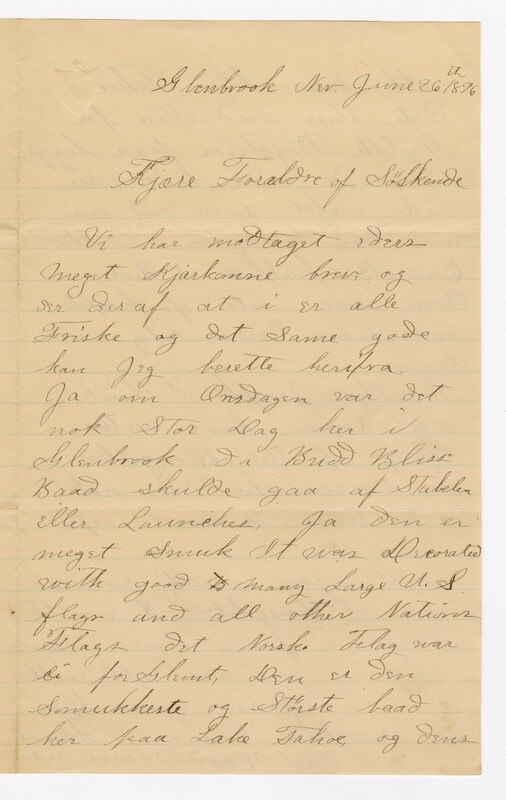 Glenbrook Nev. June 26th 1896
Kjære Forældre of Söskende
Vi har modtaget eders
meget Kjærkomne brev og
ser deraf at i er alle
Friske og det Same gode
kan Jeg berette herifra,
Ja om Onsdagen var det
nok Stor Dag her i
Glenbrook da Budd Bliss
Baad skulde gaa af Stabelen
eller Launches, Ja den er
meget Smuk It was Decorated
with good many Large U. S
flags and all other Nations
Flags det Norske Flag var
ei forglemt, Den er den
Smukkeste og Störste baad
her paa Lake Tahoe, og dens